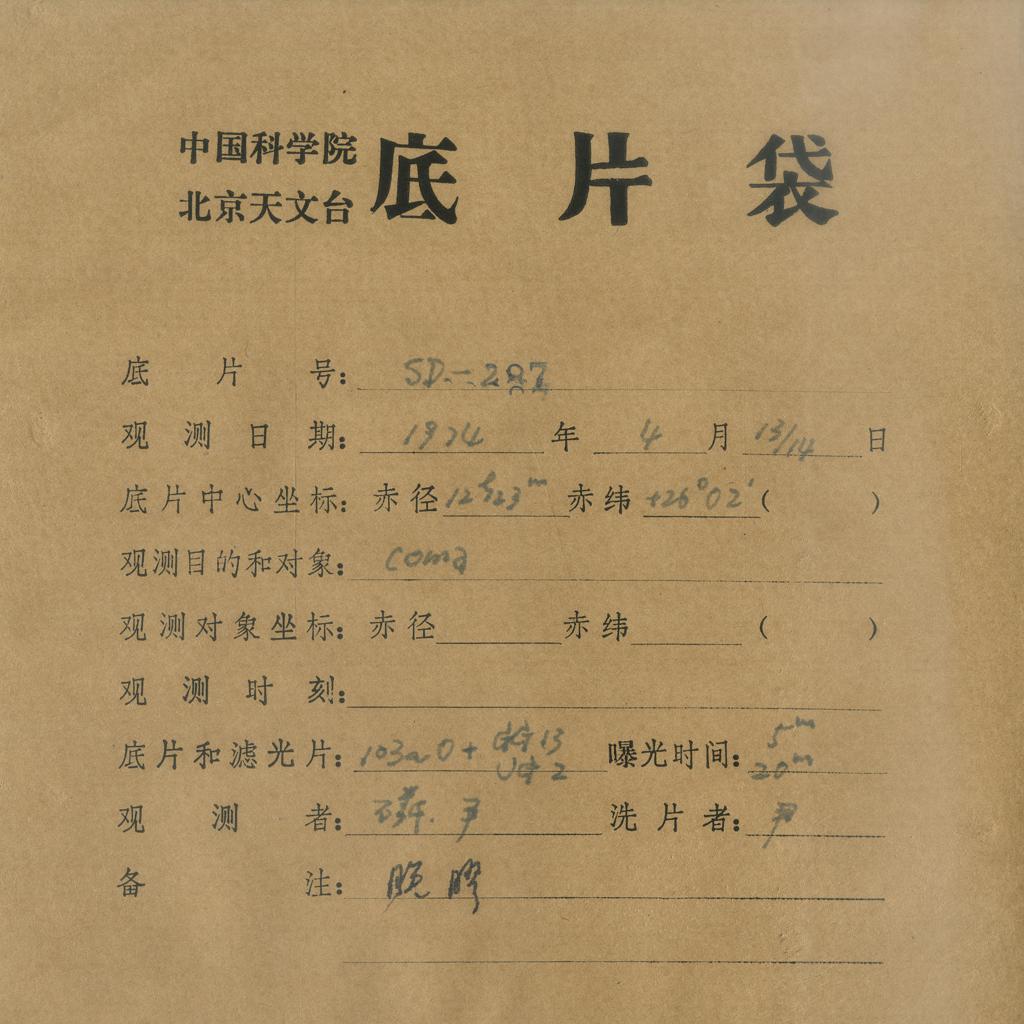 中国科学院
北京天文台
底片袋
底片号: SD-287
观测日期: 1974年 4月 13/14日
底片中心坐标: 赤径 12h23m 赤纬 +26°02′( )
观测目的和对象: Coma
观测对象坐标: 赤径 赤纬 ( )
观测时刻:
底片和滤光片: 103aO+ GG 13 曝光时间: 5m
UG 2 20m
观测者: 尹 洗片者: 尹
备注: 脱膠